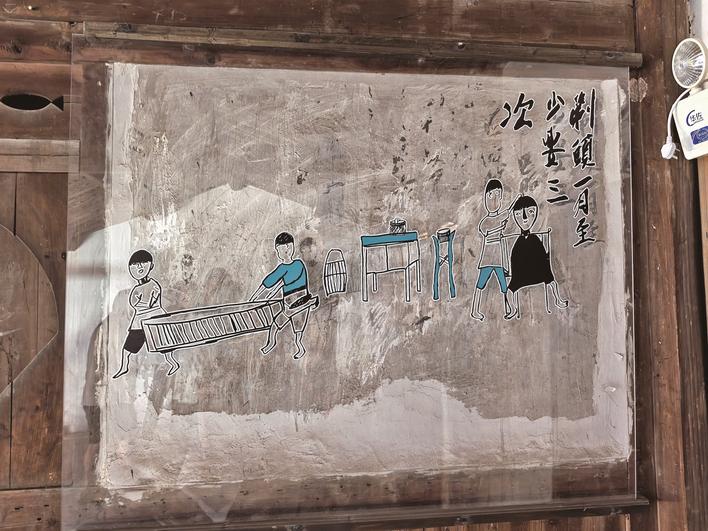 剃頭一月至
少三
次